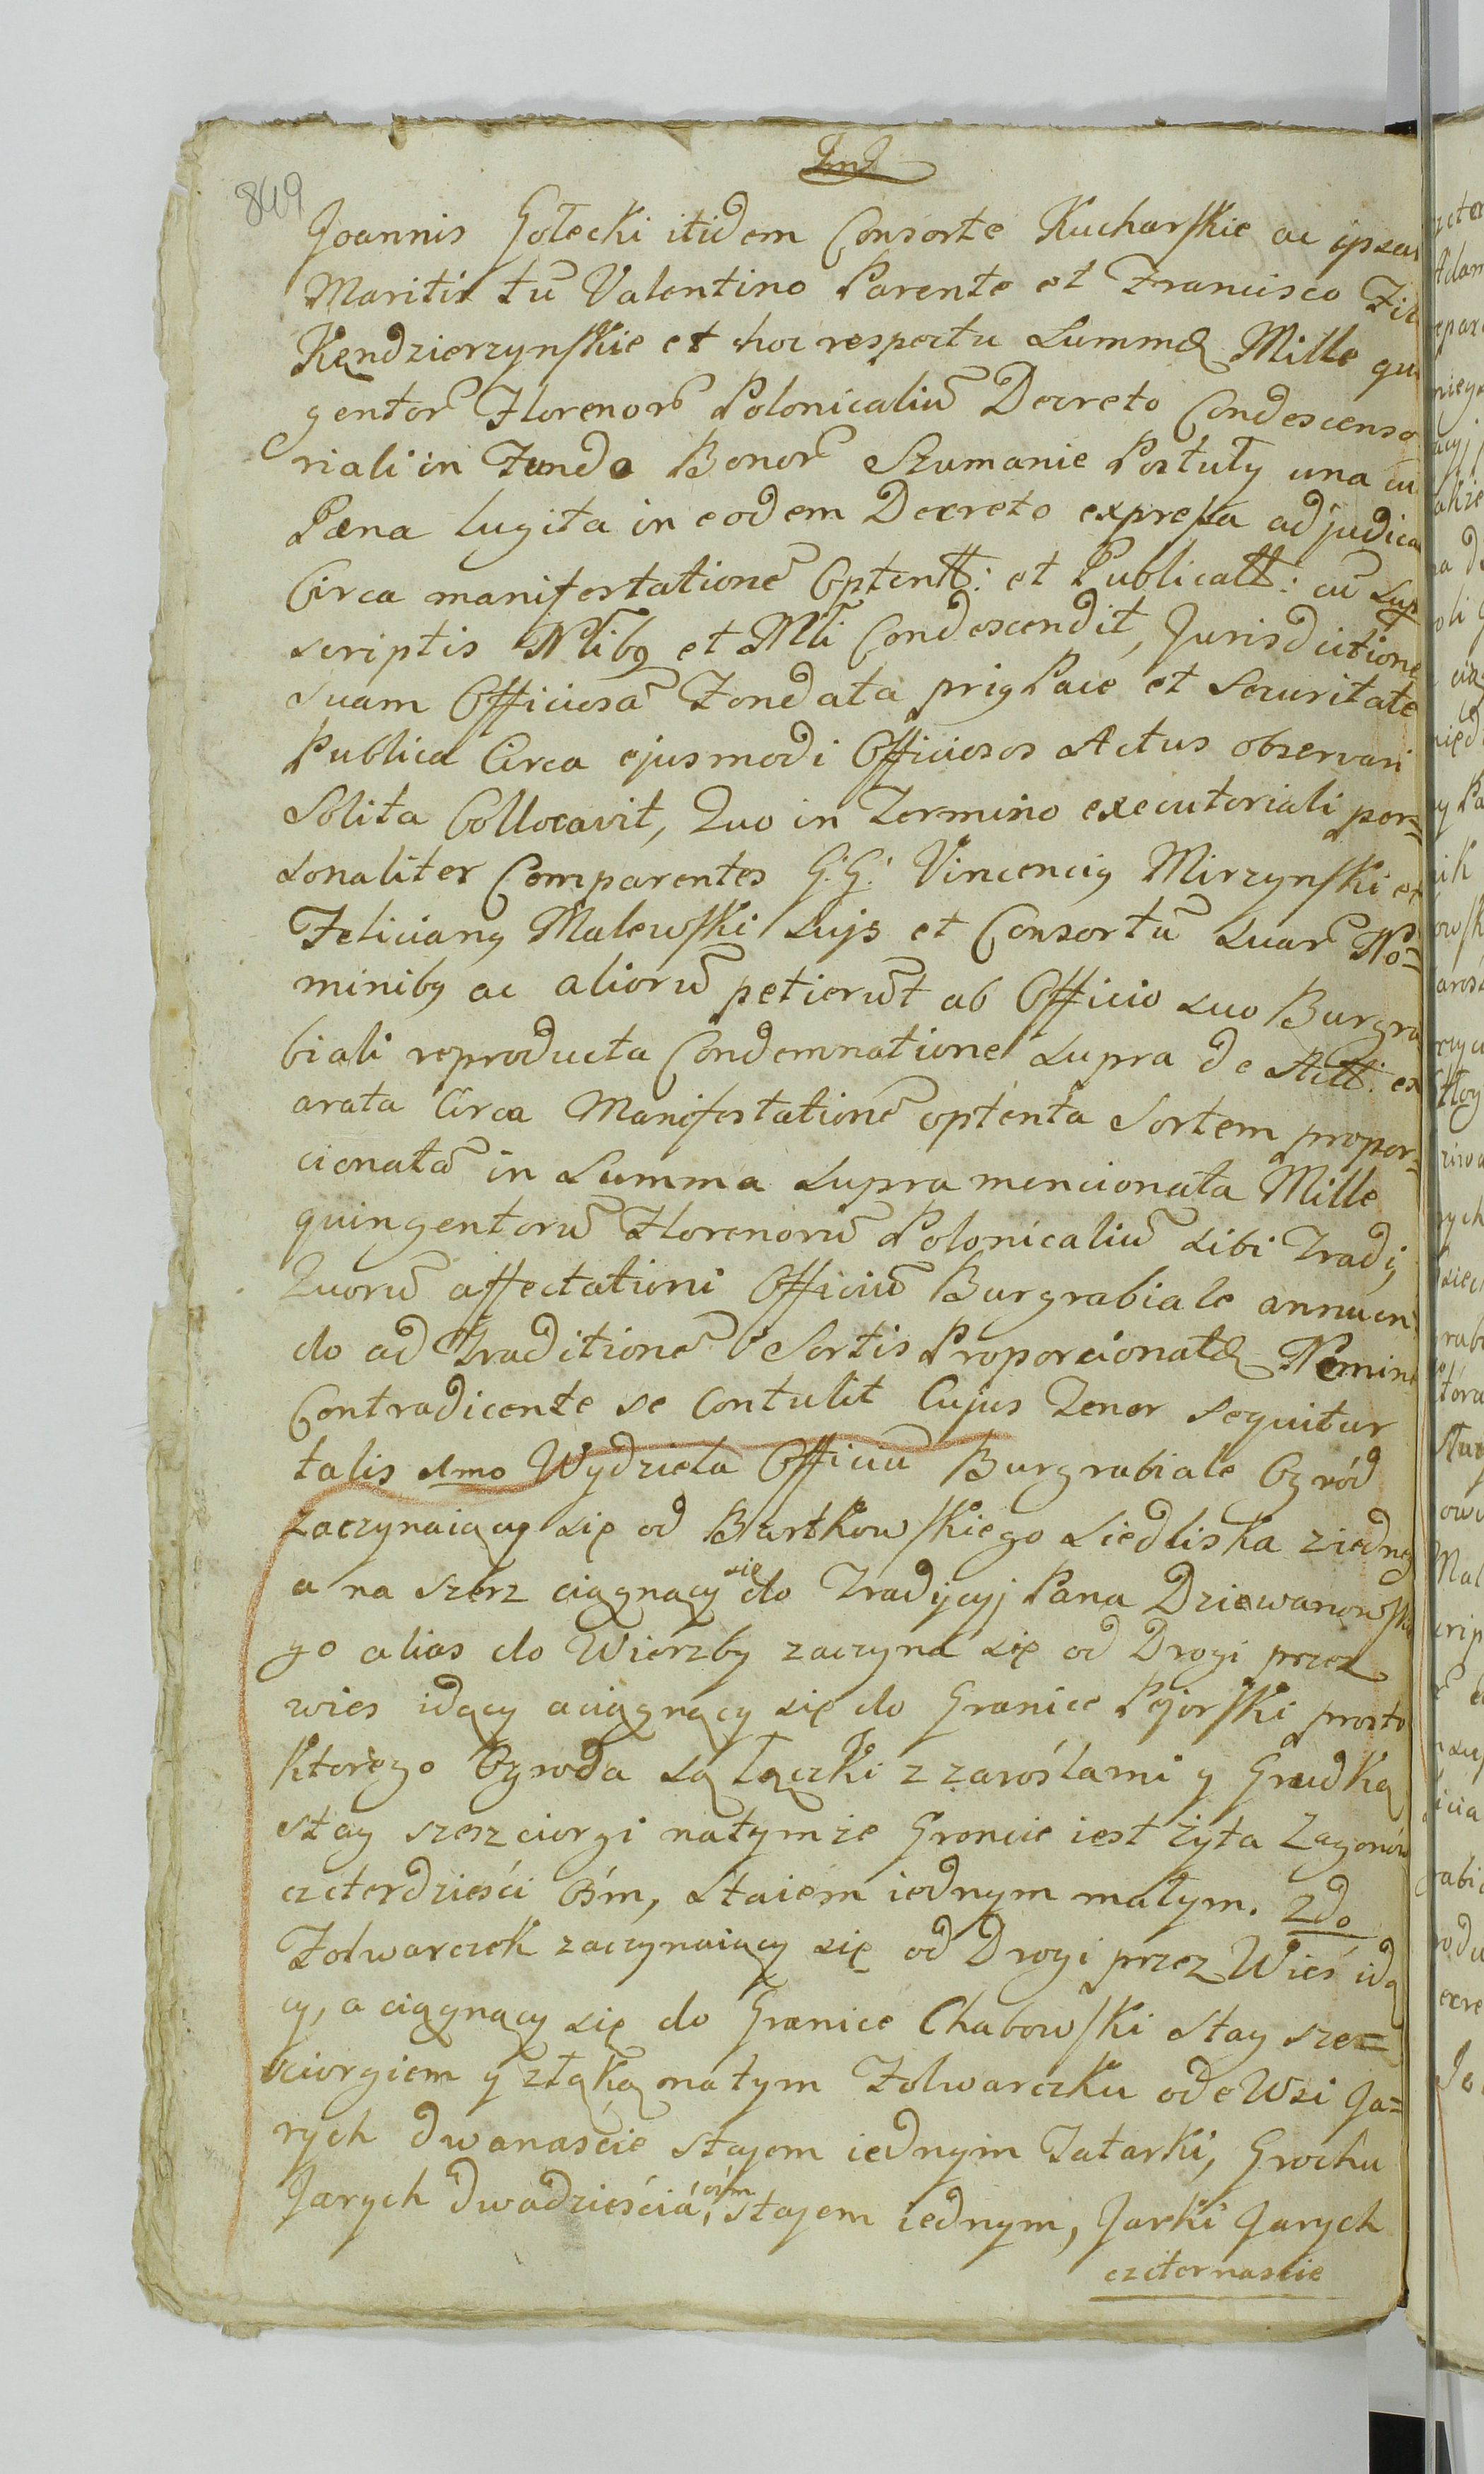 849
Joannis Gołecki itidem Consorte Kucharskie ac ipsar
Maritis tũ Valentino Parente et Francisco Fil
Kęndzierzynskie et hoc respectu Summæ Mille qu
gentor̃ Florenor̃ Polonicaliũ Decreto Condescenso
riali in Fundo Bonor̃ Szumanie Portuły una cu
Pæna lugita in eodem Decreto expressa adjudica
Circa manifestationẽ Optentt: et Publicatt: cũ Sup
scriptis Nlibq et Mli Condescendit, Jurisdictione
Suam Officiosã Fondata priq Pace et Securitate
Publica Circa ejusmodi Officiosos Actus observari
Solita Collocavit, Quo in Termino executoriali per=
sonaliter Comparentes G: G: Vincenciq Mirzynski et
Felicianq Malewski Suis et Consortũ Suar̃ No=
minibq ac aliorũ petierũt ab Officio Suo Burgra
biali reproducta Condemnatione Supra de Actt: ex
arata Circa Manifestationẽ optenta Sortem propor=
cionatã in Summa Supra mencionata Mille
quingentorũ Florenorũ Polonicaliũ Sibi Tradi,
Quorũ affectationi Officiũ Burgrabiale annuen
do ad Traditionẽ Sortis Proporcionatæ Nemine
Contradicente se Contulit Cujus Tenor Sequitur
talis 1mo Wydziela Officiũ Burgrabiale Ogród
Zaczynaiący się od Bartkowskiego Siedliska ziedney
a na szerz ciągnący się do Tradycyj Pana Dziewanowskie
go alias do Wierzby zaczyna się od Drogi przez
wies idący a ciągnący się do Granice Pejorski prosto
ktorego Ogroda są Łączki z zaroślami y Grudką
stay szesciorgi natymże Groncie iest żyta Zagonów
czterdzieści ośm, Staiem iednym małym. 2do
Folwarczek zaczynaiący się od Drogi przez Wieś idą
cy, a ciągnący się do Granice Chabowski Stay sze=
sciorgiem y złąką natym Folwarczku ode Wsi Ja=
rych dwanaście Stajem iednym Tatarki, Grochu
Jarych dwadzieścia, ośm Stajem iednym, Jarki Jarych
czternaście